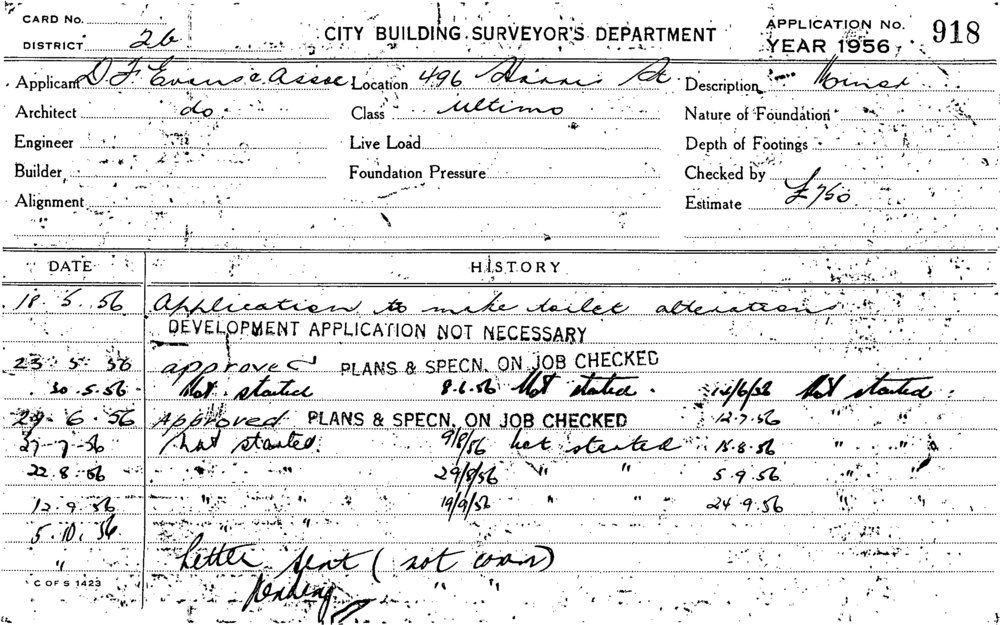 CARD No.
DISTRICT 26
CITY BUILDING SURVEYOR'S DEPARTMENT
APPLICATION No. 918
YEAR 1956
Applicant D F Evans & Assoc Location 496 Harris St. Description Minor
Architect do. Class Ultimo Nature of Foundation
Engineer Live Load Depth of Footings
Builder Foundation Pressure Checked by
Alignment Estimate £750
DATE HISTORY
18.5.56 Application to make toilet alterations
DEVELOPMENT APPLICATION NOT NECESSARY
23.5.56 approved PLANS & SPECN. ON JOB CHECKED
30.5.56 Not started 8.6.56 Not started. 14/6/56 Not started.
29.6.56 Approved PLANS & SPECN. ON JOB CHECKED 12.7.56 " "
27-7-56 Not started. 9/8/56 Not started 15.8.56 " "
22.8.56 " " 29/8/56 " " 5.9.56 " "
12.9.56 " " 19/9/56 " " 24.9.56 " "
5.10.56 " "
" Letter sent (not com)
C OF S 1423
pending " "